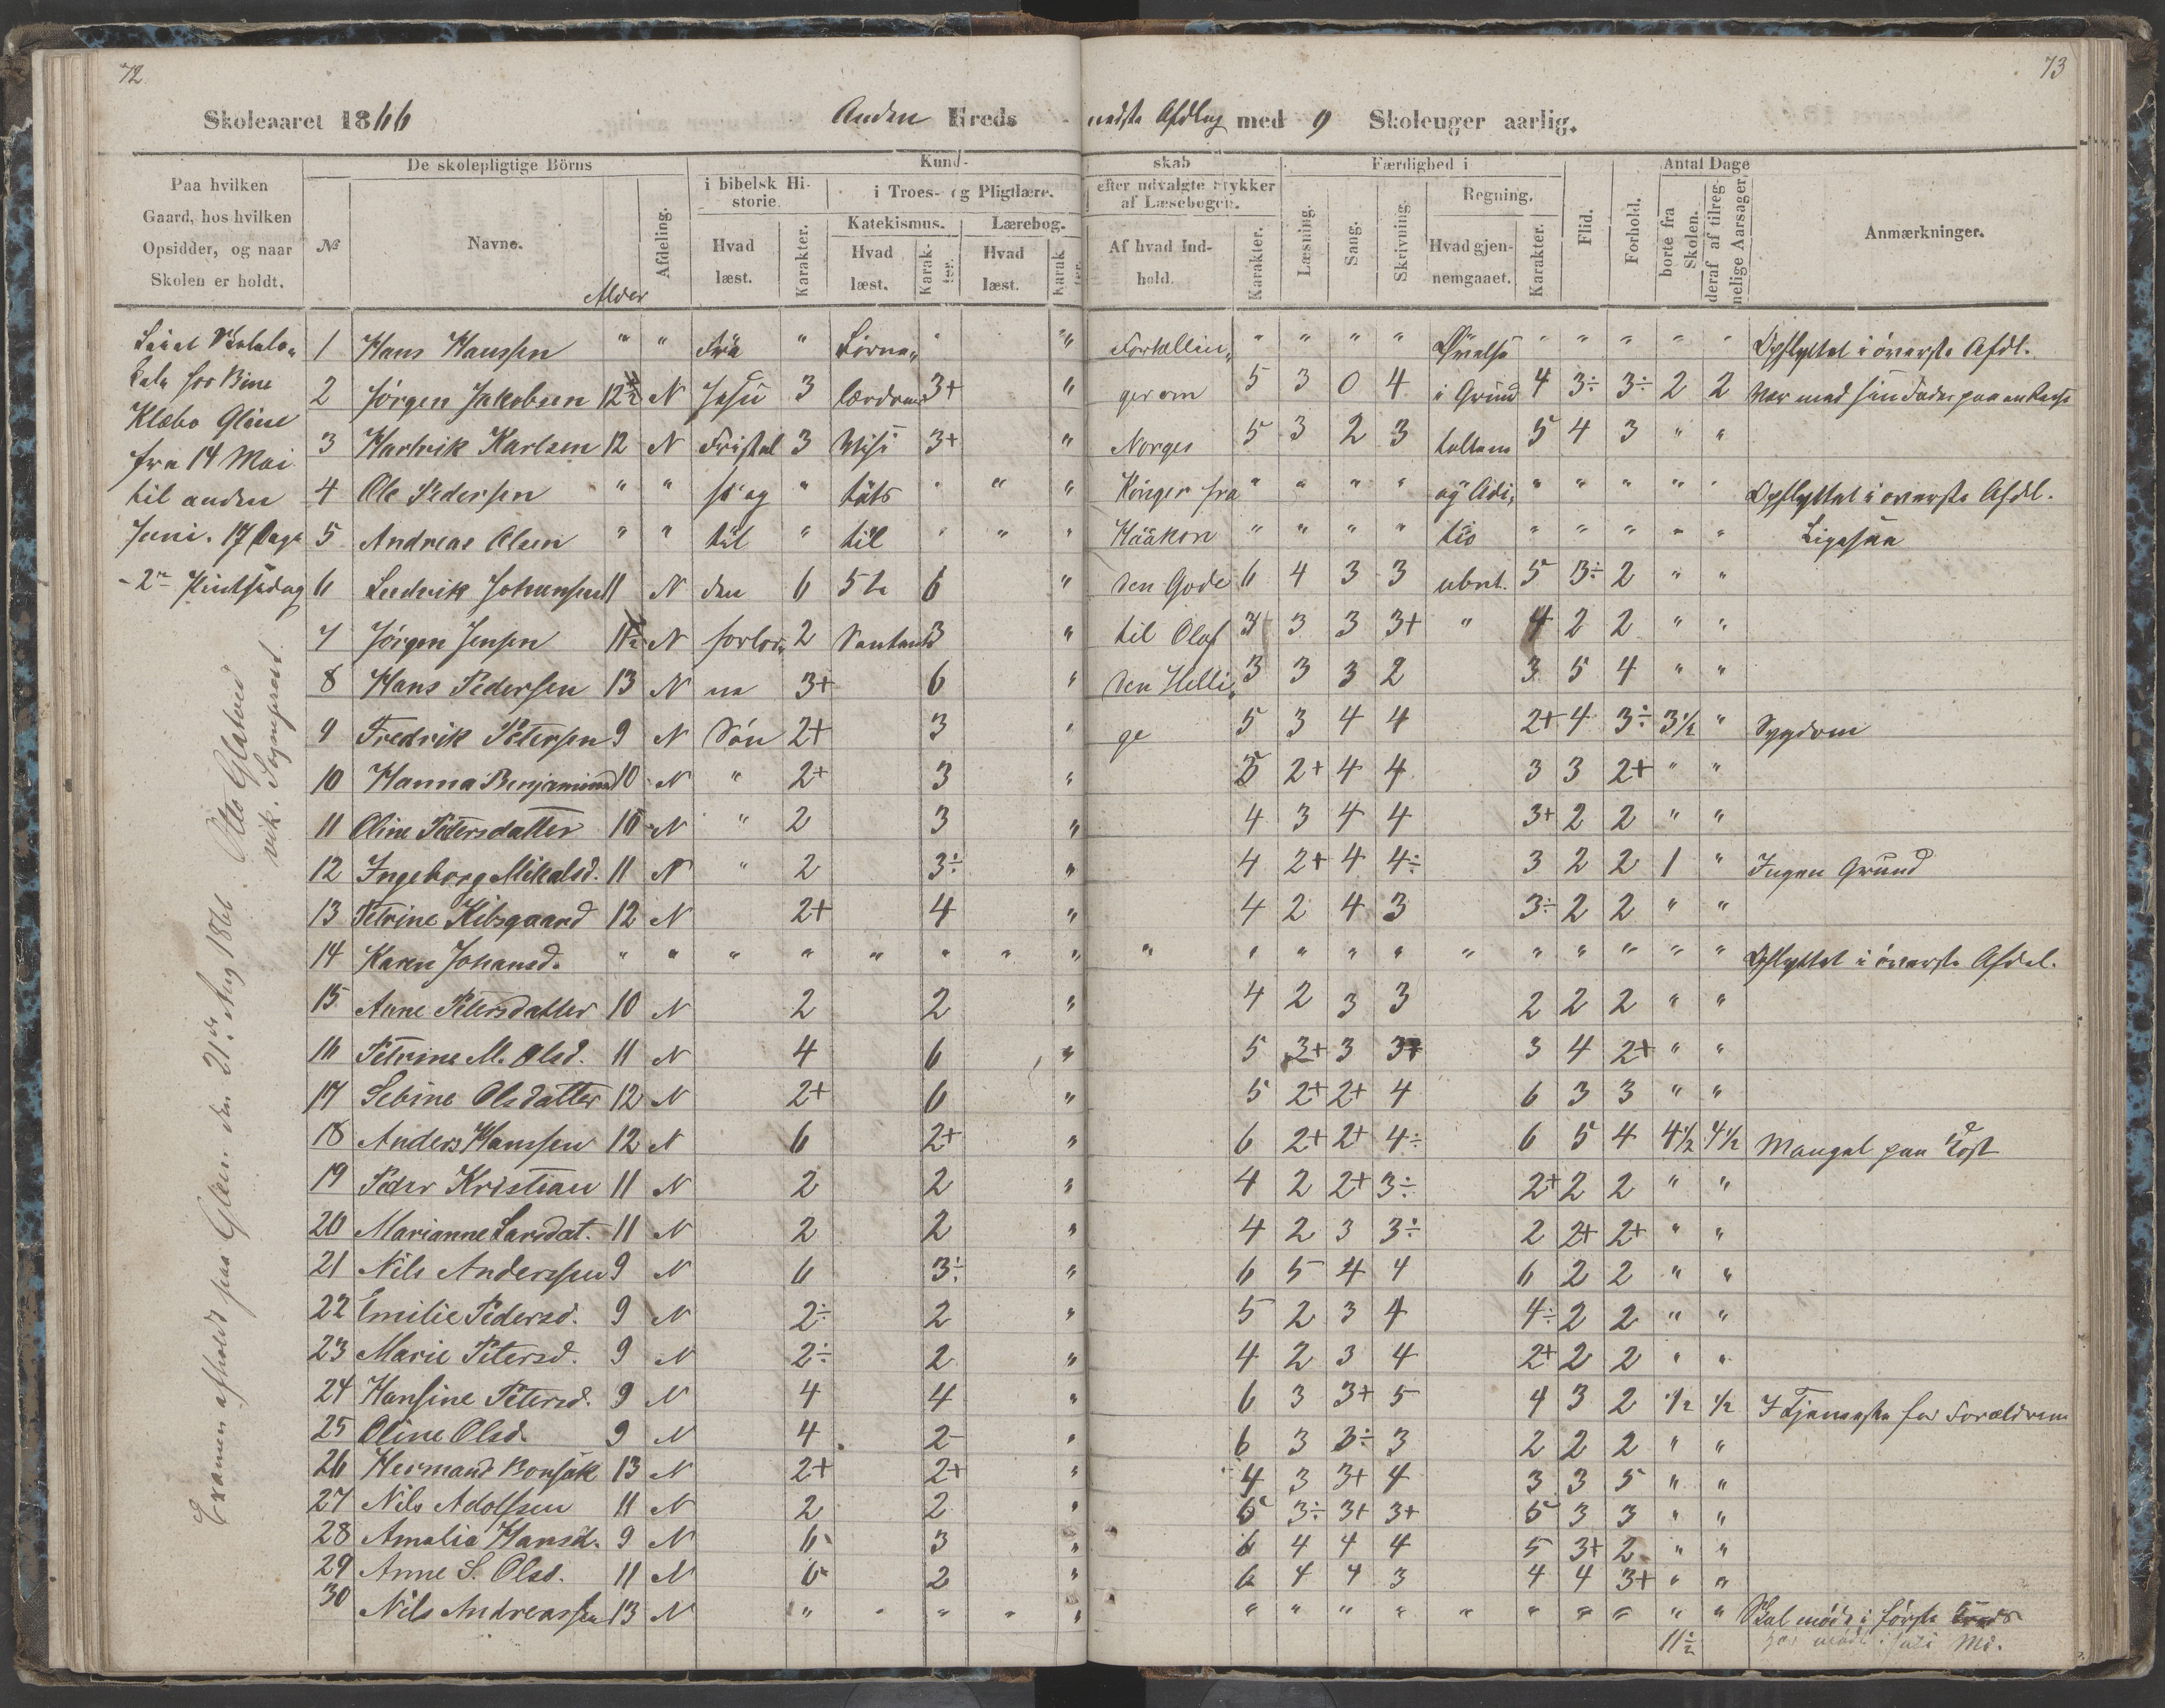 72
73
Skoleaaret 1866 Anden Kreds nedste Afdling med 9 Skoleuger aarlig.
Paa hvilken Gaard, hos hvilken Opsidder, og naar Skolen er holdt.
De skolepligtige Börns
№ Navne. Alder Afdeling.
Kundskab
i bibelsk Historie. Hvad læst. Karakter.
i Troes- og Pligtlære.
Katekismus. Hvad læst. Karakter.
Lærebog. Hvad læst. Karakter.
efter udvalgte Stykker af Læsebogen. Af hvad Indhold. Karakter.
Færdighed i
Læsning. Sang. Skrivning. Regning. Hvad gjennemgaaet. Karakter.
Flid. Forhold.
Antal Dage
borte fra Skolen. deraf af tilregnelige Aarsager.
Anmærkninger.
hos Bine
Klæbo Gleine
fra 14 Mai
til anden
Juni. 17 Dage
- 2en Pintsedag
1 Hans Hanssen " " Fra " Börne " " Fortællin " " " " Övelse " " " " " Opflyttet i överste Afdl.
2 Jörgen Jakobsen 12½ N Jesu 3 lærdom 3+ " ger om 5 3 0 4 i Grund 4 3÷ 3÷ 2 2 Var med sin Fader paa en Reise
3 Hartvik Karlsen 12 N Fristel 3 Visi 3+ " Norges 5 3 2 3 taltene 5 4 3 " "
4 Ole Pedersen " " se og " tats " " " Konger fra " " " " og Adi " " " " " Opflyttet i överste Afdl.
5 Andreas Olsen " " til " til " " " Haakon " " " " tio " " " " " Ligesaa
6 Ludvik Johansen 11 N den 6 5te 6 " den Gode 6 4 3 3 ubnt. 5 3÷ 2 " "
7 Jörgen Jensen 11½ N forlor 2 3 " til Olaf 3+ 3 3 3+ " 4 2 2 " "
8 Hans Pedersen 13 N ne 3+ 6 " den Helli 3 3 3 2 3 5 4 " "
9 Fredrik Petersen 9 N Sön 2+ 3 " ge 5 3 4 4 2+ 4 3÷ 3½ " Sygdom
10 Hanna Benjaminsd 10 N " 2+ 3 " 5 2+ 4 4 3 3 2+ " "
11 Oline Petersdatter 10 N " 2 3 " 4 3 4 4 3+ 2 2 " "
12 Ingeborg Mikalsd. 11 N " 2 3÷ " 4 2+ 4 4÷ 3 2 2 1 " Ingen Grund
13 Petrine Kibsgaard 12 N 2+ 4 " 4 2 4 3 3÷ 2 2 " "
14 Karen Johansd. " " " " " " " " " " " " " " " " " " " Opflyttet i överste Afdel.
15 Anne Petersdatter 10 N 2 2 " 4 2 3 3 2 2 2 " "
16 Petrine M. Olsd. 11 N 4 6 " 5 3+ 3 3+ 3 4 2+ " "
17 Sebine Olsdatter 12 N 2+ 6 " 5 2+ 2+ 4 6 3 3 " "
18 Anders Hanssen 12 N 6 2+ " 6 2+ 2+ 4÷ 6 5 4 4½ 4½ Mangel paa Kost
19 Peder Kristian 11 N 2 2 " 4 2 2+ 3÷ 2+ 2 2 " "
20 Marianne Larsdat. 11 N 2 2 " 4 2 3 3÷ 2 2+ 2+ " "
21 Nils Anderssen 9 N 6 3÷ " 6 5 4 4 6 2 2 " "
22 Emilie Pedersd. 9 N 2÷ 2 " 5 2 3 4 4÷ 2 2 " "
23 Marie Petersd. 9 N 2÷ 2 " 4 2 3 4 2+ 2 2 " "
24 Hansine Petersd. 9 N 4 4 " 6 3 3+ 5 4 3 2 ½ ½ I Tjeneste for Forældrene
25 Oline Olsd. 9 N 4 2- " 6 3 3÷ 3 2 2 2 " "
26 Hermand Bonsak 13 N 2+ 2+ " 4 3 3+ 4 3 3 5 " "
27 Nils Adolfsen 11 N 2 2 " 5 3÷ 3+ 3+ 5 3 3 " "
28 Amalia Hansd. 9 N 6 3 " 6 4 4 4 5 3+ 2 " "
29 Anne S. Olsd. 11 N 6 2 " 6 4 4 3 4 4 3+ " "
30 Nils Andreassen 13 N " " " " " " " " " " " " " " " " Skal möde i förste Kreds
11½
Examen afholdt paa Glein den 21de Aug 1866. Otto Glatved
vik. Sognepræst.